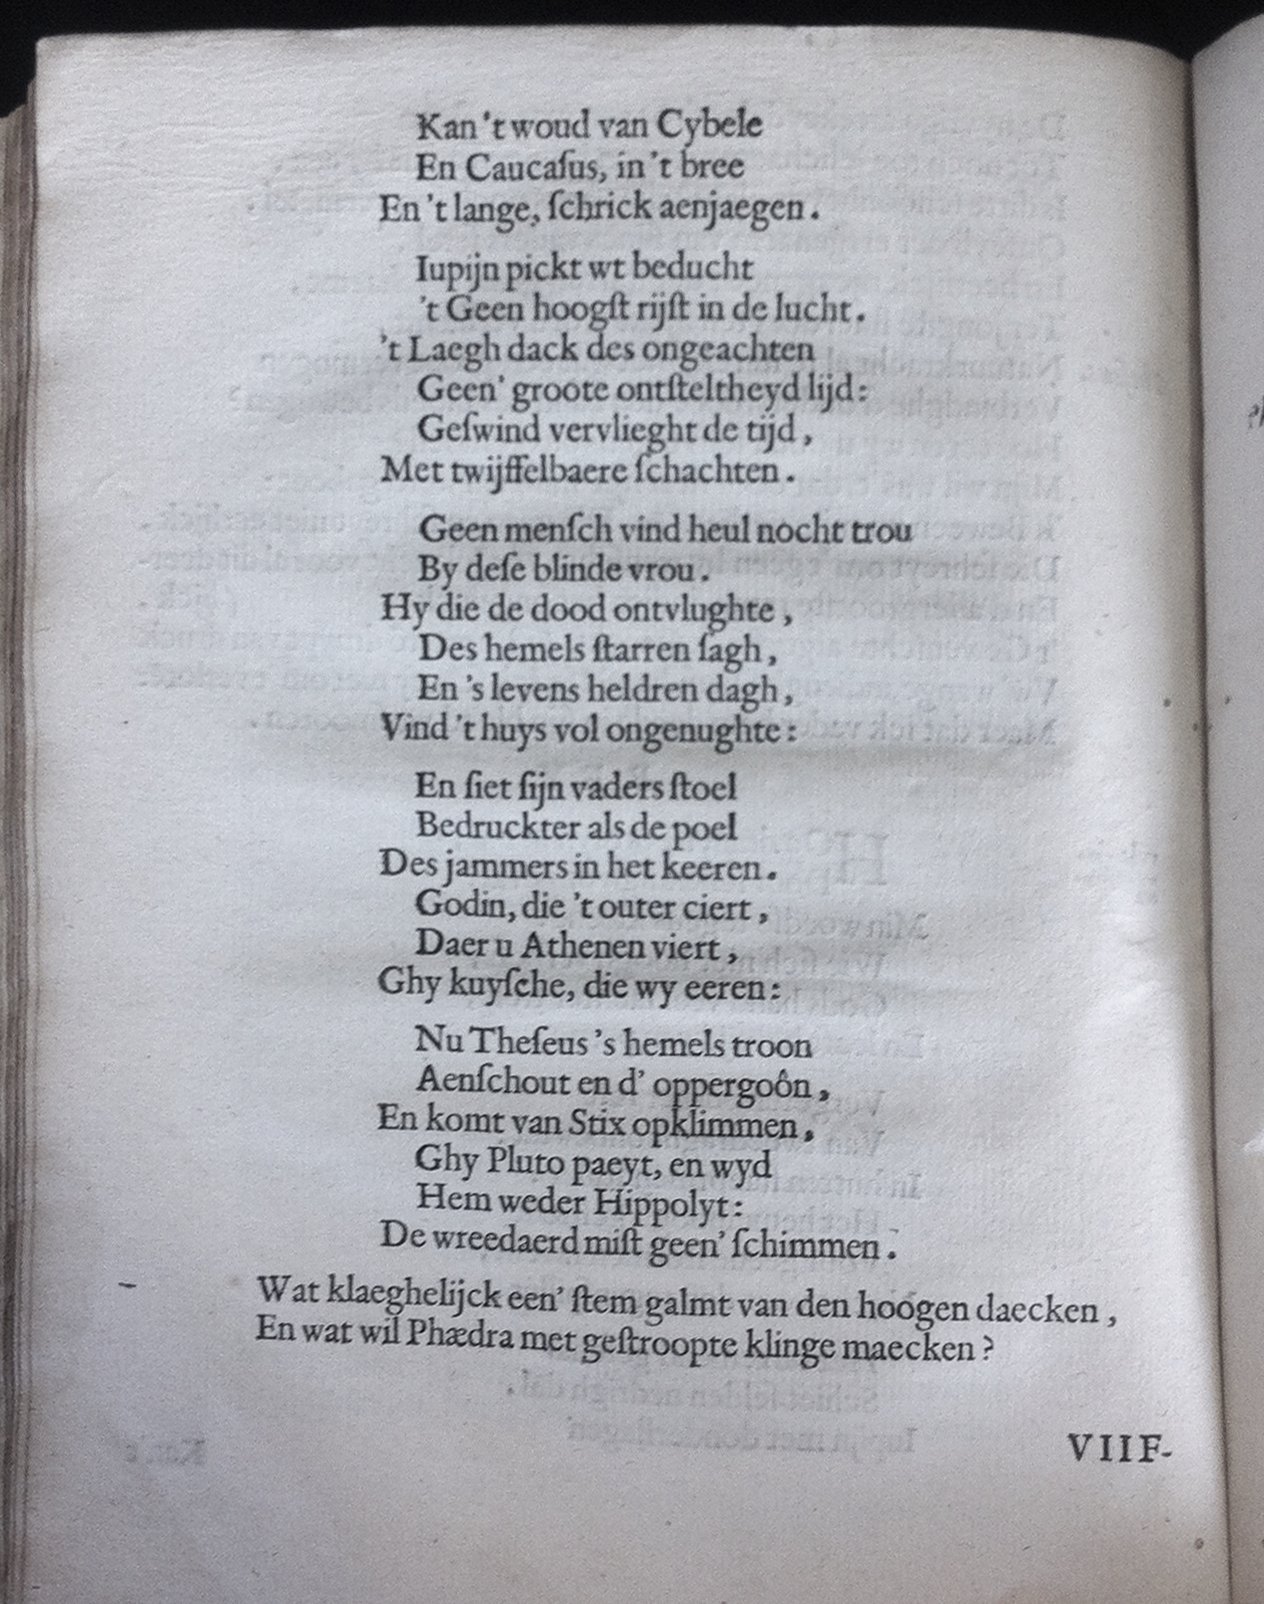 Kan 't woud van Cybele
En Caucaſus, in 't bree
En 't lange, ſchrick aenjaegen.
Iupijn pickt wt beducht
't Geen hoogſt rijſt in de lucht.
't Laegh dack des ongeachten
Geen' groote ontſteltheyd lijd:
Geſwind vervlieght de tijd,
Met twijffelbaere ſchachten.
Geen menſch vind heul nocht trou
By deſe blinde vrou.
Hy die de dood ontvlughte,
Des hemels ſtarren ſagh,
En 's levens heldren dagh,
Vind 't huys vol ongenughte:
En ſiet ſijn vaders ſtoel
Bedruckter als de poel
Des jammers in het keeren.
Godin, die 't outer ciert,
Daer u Athenen viert,
Ghy kuyſche, die wy eeren:
Nu Theſeus 's hemels troon
Aenſchout en d' oppergoôn,
En komt van Stix opklimmen,
Ghy Pluto paeyt, en wyd
Hem weder Hippolyt:
De wreedaerd miſt geen' ſchimmen.
Wat klaeghelijck een' ſtem galmt van den hoogen daecken,
En wat wil Phædra met geſtroopte klinge maecken?
VIIF-